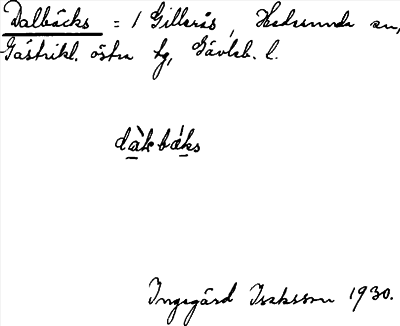 Dalbäcks = 1 Gillerås, Hedesunda sn,
Gästrikl. östra tg, Gävleb. l.
dàkbáks
Ingegärd Isaksson 1930.